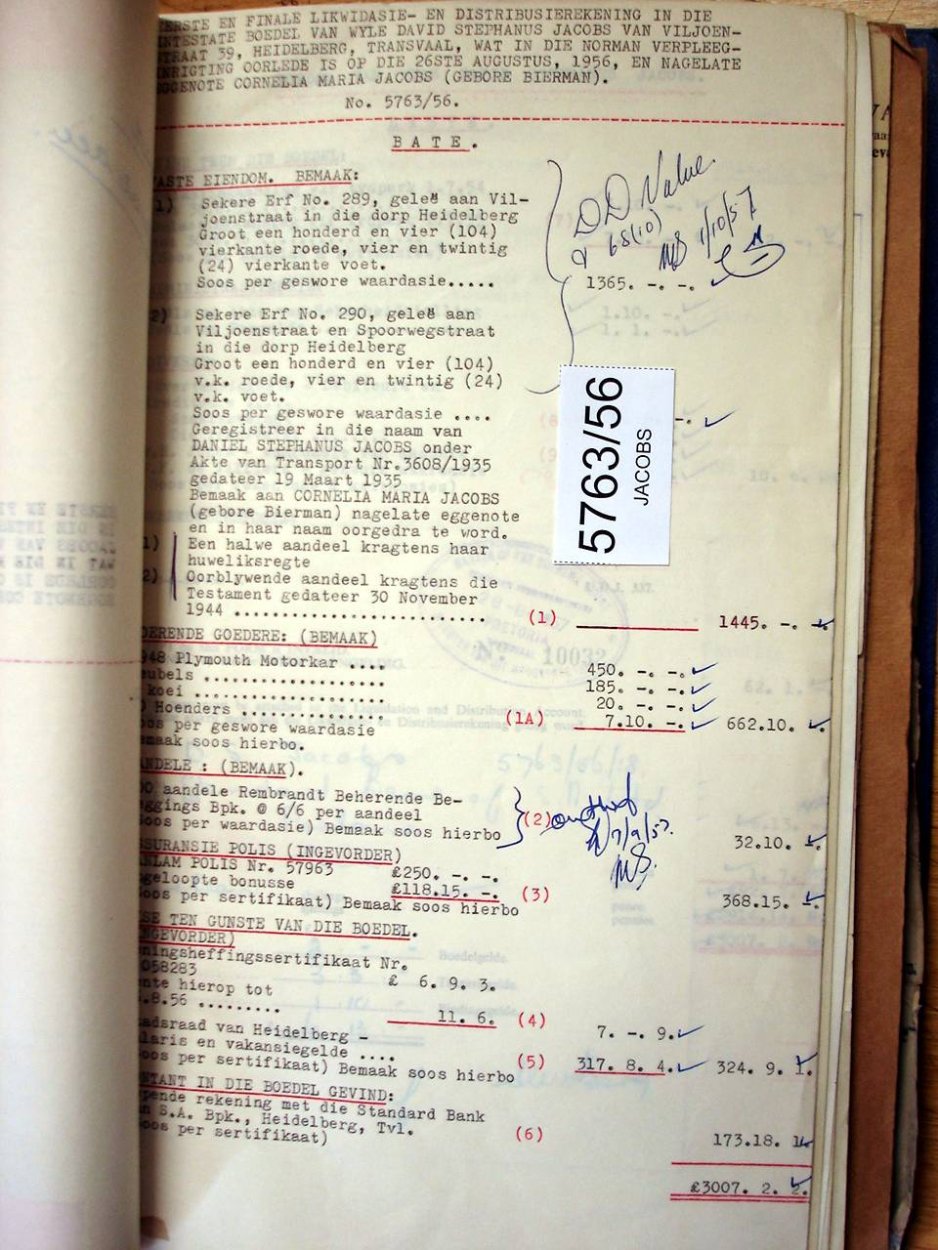 EERSTE EN FINALE LIKWIDASIE- EN DISTRIBUSIEREKENING IN DIE
INTESTATE BOEDEL VAN WYLE DAVID STEPHANUS JACOBS VAN VILJOEN-
STRAAT 39, HEIDELBERG, TRANSVAAL, WAT IN DIE NORMAN VERPLEEG-
INRIGTING OORLEDE IS OP DIE 26STE AUGUSTUS, 1956, EN NAGELATE
EGGENOTE CORNELIA MARIA JACOBS (GEBORE BIERMAN).
No. 5763/56.
BATE.
VASTE EIENDOM. BEMAAK:
1) Sekere Erf No. 289, geleë aan Vil-
joenstraat in die dorp Heidelberg
Groot een honderd en vier (104)
vierkante roede, vier en twintig
(24) vierkante voet.
Soos per geswore waardasie..... 1365. -. -.
DD Value
68(10) MS 1/10/57
2) Sekere Erf No. 290, geleë aan
Viljoenstraat en Spoorwegstraat
in die dorp Heidelberg
Groot een honderd en vier (104)
v.k. roede, vier en twintig (24)
v.k. voet.
Soos per geswore waardasie .... -.
Geregistreer in die naam van
DANIEL STEPHANUS JACOBS onder
Akte van Transport Nr.3608/1935
gedateer 19 Maart 1935
Bemaak aan CORNELIA MARIA JACOBS
(gebore Bierman) nagelate eggenote
en in haar naam oorgedra te word.
1) Een halwe aandeel kragtens haar
huweliksregte
2) Oorblywende aandeel kragtens die
Testament gedateer 30 November
1944 ............................ (1) 1445. -. -.
5763/56
JACOBS
10032
ERENDE GOEDERE: (BEMAAK)
948 Plymouth Motorkar .... 450. -. -.
eubels .................. 185. -. -.
koei .................... 20. -. -.
Hoenders ................ (1A) 7.10. -. 662.10. -.
oos per geswore waardasie
emaak soos hierbo.
NDELE : (BEMAAK).
00 aandele Rembrandt Beherende Be-
eggings Bpk. @ 6/6 per aandeel
oos per waardasie) Bemaak soos hierbo (2) 32.10. -.
7/9/57.
MS.
SURANSIE POLIS (INGEVORDER)
ANLAM POLIS Nr. 57963 £250. -. -.
geloopte bonusse £118.15. -. (3)
oos per sertifikaat) Bemaak soos hierbo 368.15. -.
SE TEN GUNSTE VAN DIE BOEDEL.
NGEVORDER)
eningsheffingssertifikaat Nr.
058283 £ 6. 9. 3.
nte hierop tot
.8.56 ......... 11. 6. (4) 7. -. 9.
adsraad van Heidelberg -
laris en vakansiegelde ....
oos per sertifikaat) Bemaak soos hierbo (5) 317. 8. 4. 324. 9. 1.
NTANT IN DIE BOEDEL GEVIND:
pende rekening met die Standard Bank
n S.A. Bpk., Heidelberg, Tvl.
oos per sertifikaat) (6) 173.18. 1.
£3007. 2. 2.